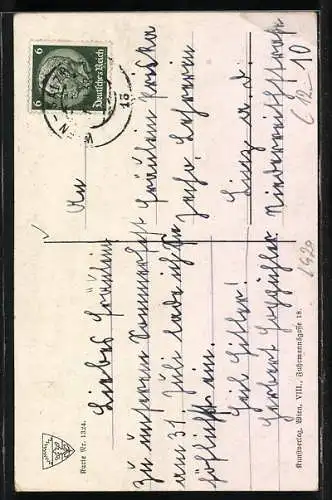 6 Deutsches Reich 6
WIEN
15
An
Fräulein
Lehrerin
Linz a. d.
Niederreithstraße
C 12 10
Liebes Fräulein
zu unserem Sommerfest
am 31 Juli lade ich Sie
höflichst ein.
Heil Hitler!
Herbert
Karte Nr. 1324.
Kunstverlag, Wien, VIII., Fuhrmannsgasse 18.